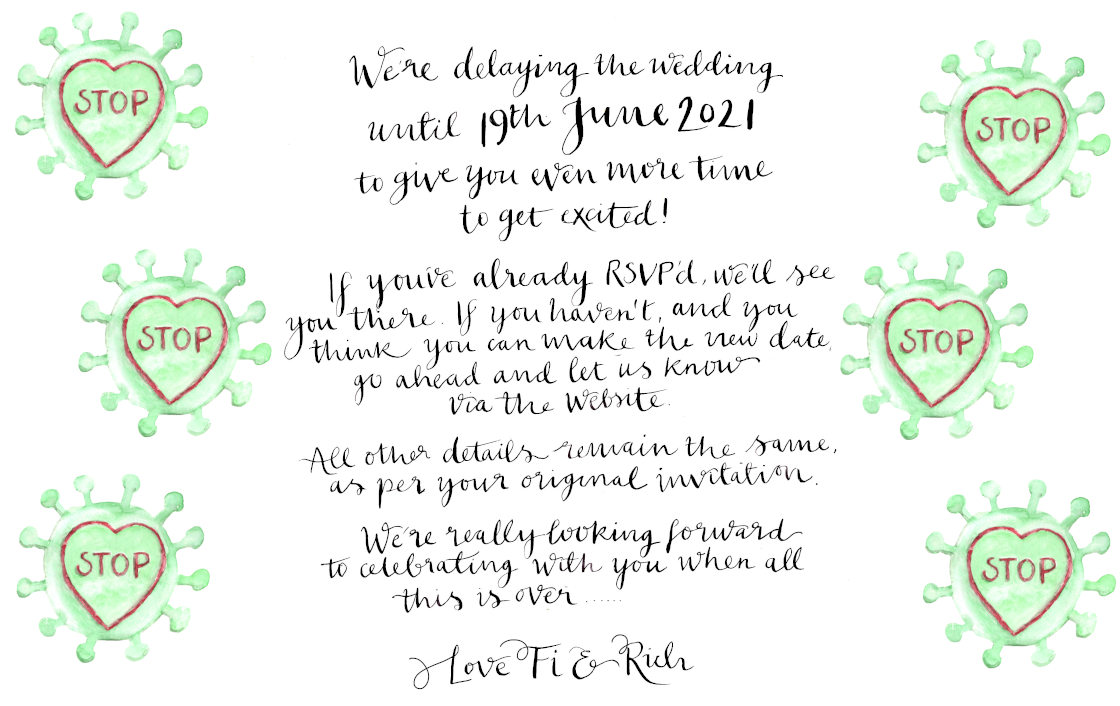 STOP
STOP
STOP
STOP
STOP
STOP
We're delaying the wedding
until 19th June 2021
to give you even more time
to get excited!
If you've already RSVP'd, we'll see
you there. If you haven't, and you
think you can make the new date,
go ahead and let us know
via the website.
All other details remain the same,
as per your original invitation.
We're really looking forward
to celebrating with you when all
this is over ......
Love Fi & Rich